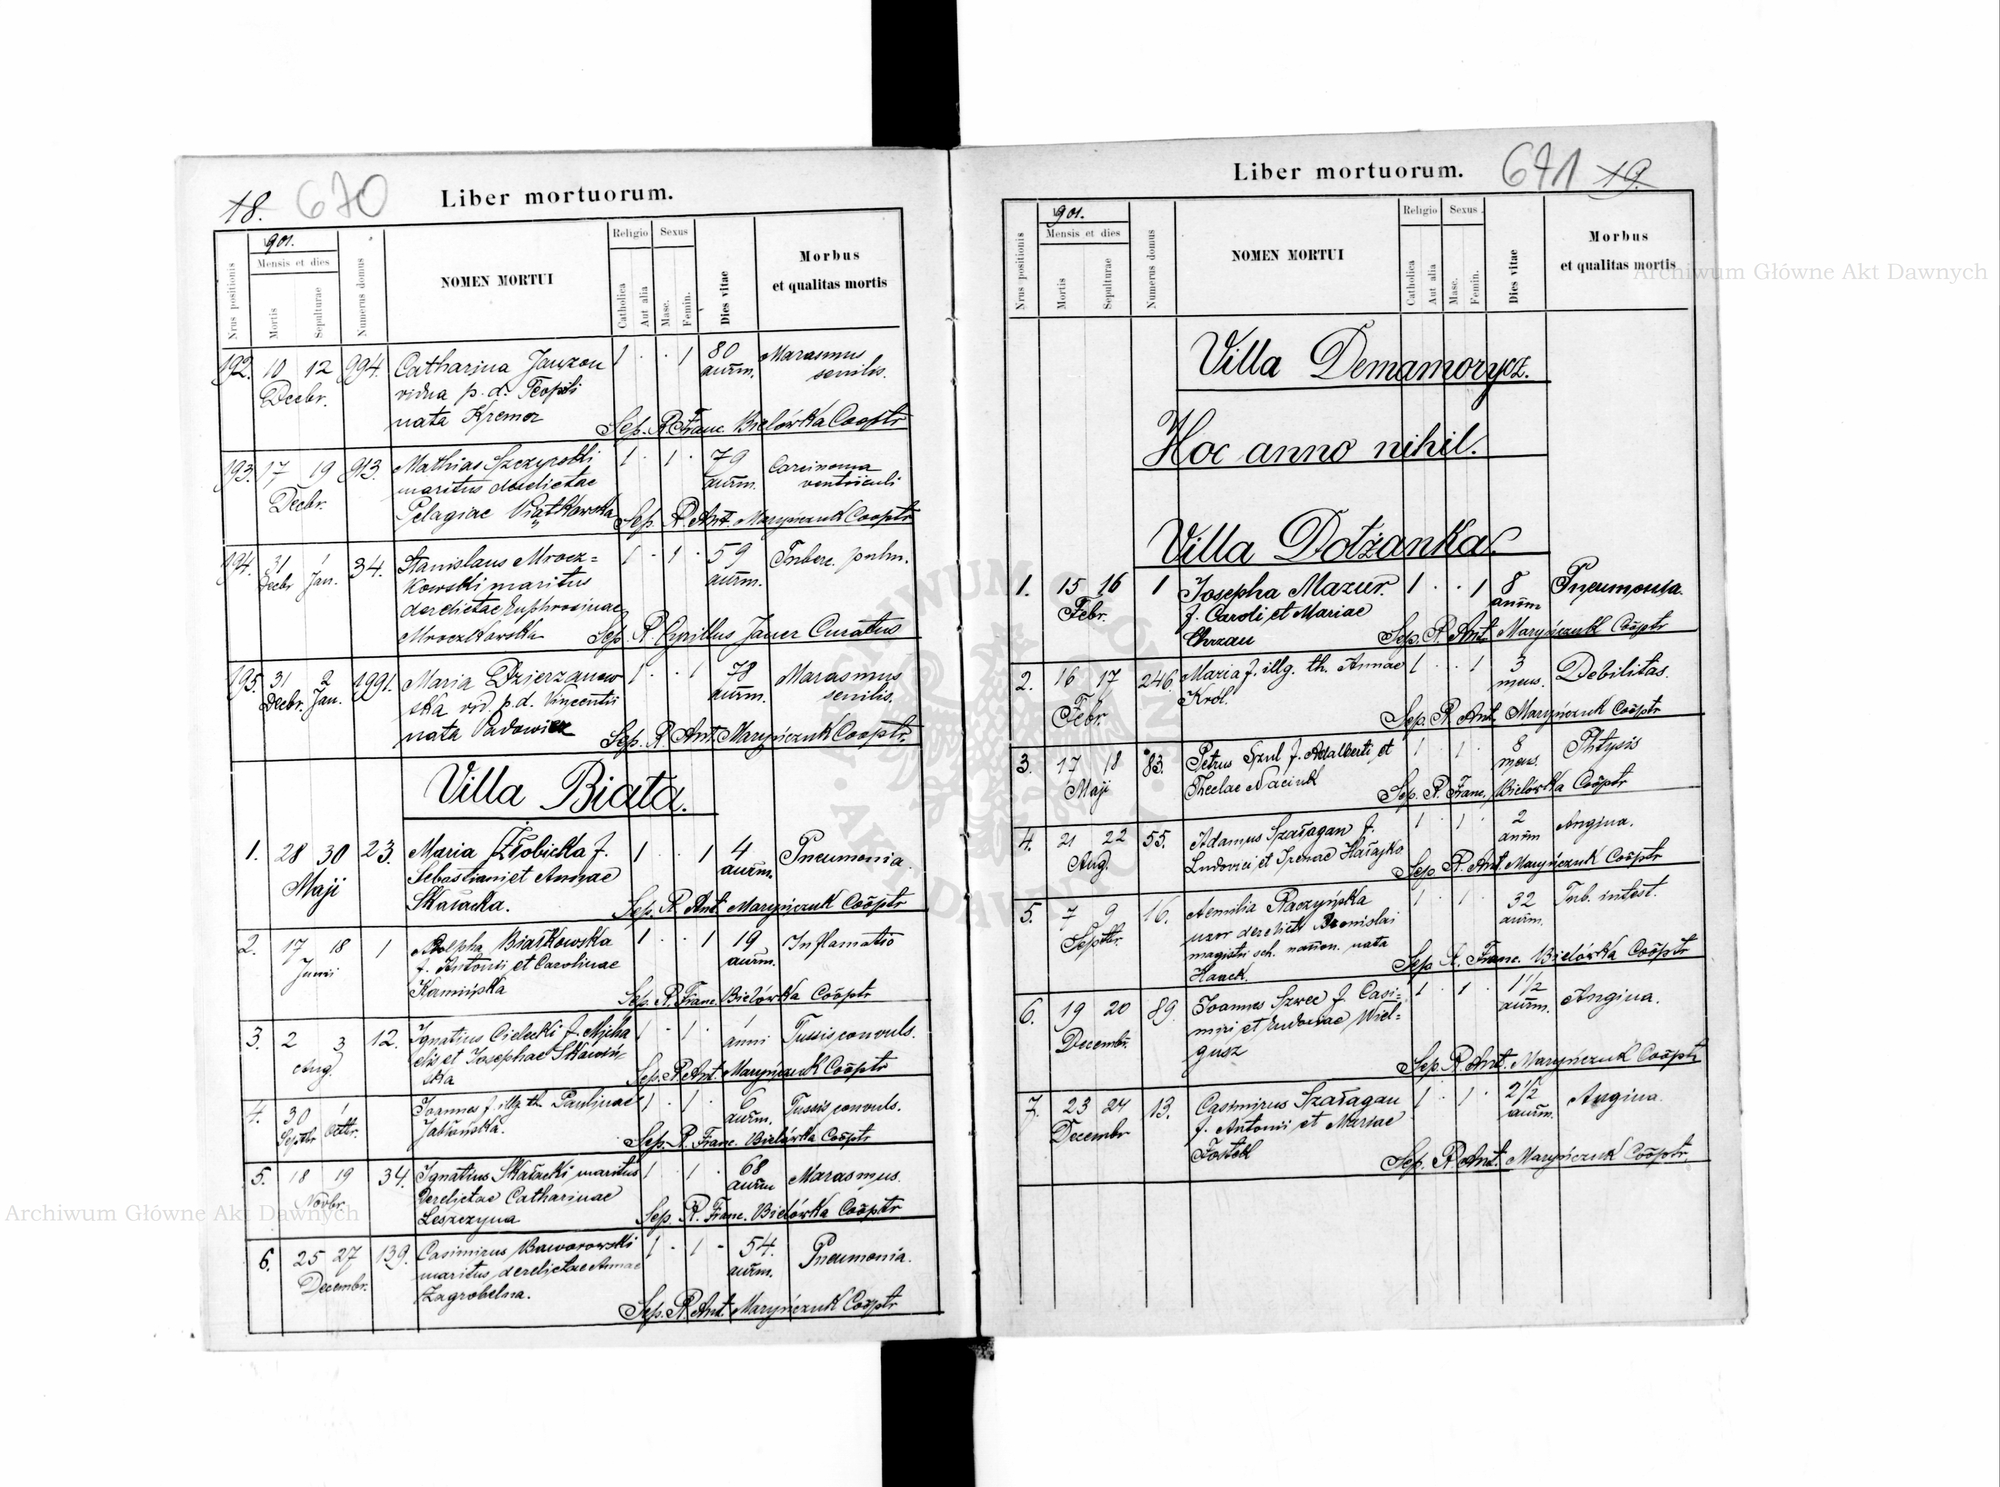 18. 670
Liber mortuorum.
901.
Nrus positionis
Mensis et dies
Mortis
Sepulturae
Numerus domus
NOMEN MORTUI
Religio
Catholica
Aut alia
Sexus
Masc.
Femin.
Dies vitae
Morbus
et qualitas mortis
192. 10 12 994. Catharina 1 . . 1 80 Marasmus
Decbr. vidua p. d. Teopili annm. senilis.
nata Kremer Sep. R. Franc. Bielówka Cooptr
193. 17 19 913. Mathias 1 . 1 . 79 Carcinoma
Decbr. maritus derelictae annm. ventriculi
Pelagiae Sep. R. Ant. Maryńczuk Cooptr
194. 31 1 34. Stanislaus Mrocz= 1 . 1 . 59 Tuberc. pulm.
Decbr Jan. kowski maritus annm.
derelictae Euphrosinae
Mroczkowska Sep. R. Cyrillus Janer Curatus
195. 31 2 1991. Maria Dzierzanow 1 . . 1 78 Marasmus
Decbr. Jan. ska vid. p. d. Vincentii annm. senilis.
nata Sep. R. Ant. Maryńczuk Cooptr.
Villa Biała.
1. 28 30 23. Maria Żłobicka f. 1 . . 1 4 Pneumonia.
Maji Sebastiani et Annae annm.
Skałacka. Sep. R. Ant. Maryńczuk Coöptr
2. 17 18 1 Białkowska 1 . . 1 19 Inflamatio
Junii f. Antonii et Carolinae annm.
Kamińska Sep. R. Franc. Bielówka Coöptr
3. 2 3 12. Ignatius Cielecki f. Micha 1 . 1 . 1 Tussis convuls.
Aug. elis et Josephae Skawiń- anni
ska Sep. R. Ant. Maryńczuk Coöptr
4. 30 1 Joannes f. illg. th. Paulinae 1 . 1 . 6 Tussis convuls.
Septbr Octbr. Jabłańska. annm.
Sep. R. Franc. Bielówka Coöptr
5. 18 19 34. Ignatius Skałacki maritus 1 . 1 . 68 Marasmus.
Novbr. derelictae Catharinae annm
Leszczyna Sep. R. Franc. Bielówka Coöptr
6. 25 27 139. Casimirus Baworowski 1 . 1 - 54. Pneumonia.
Decembr. maritus derelictae Annae annm.
Zagrobelna. Sep. R. Ant. Maryńczuk Coöptr
Liber mortuorum.
671 19.
901.
Nrus positionis
Mensis et dies
Mortis
Sepulturae
Numerus domus
NOMEN MORTUI
Religio
Catholica
Aut alia
Sexus
Masc.
Femin.
Dies vitae
Morbus
et qualitas mortis
Villa Demamorycz.
Hoc anno nihil.
Villa Dołżanka.
1. 15 16 1 Josepha Mazur. 1 . . 1 8 Pneumonia.
Febr. f. Caroli et Mariae annm
Chrzan Sep. R. Ant. Maryńczuk Coöptr
2. 16 17 246. Maria f. illg. th. Annae 1 . . 1 3 Debilitas.
Febr. Król. mens.
Sep. R. Ant. Maryńczuk Coöptr
3. 17 18 83. Petrus Szul f. Adalberti et 1 . 1 . 8 Phtysis
Maji Theclae Naciuk mens.
Sep. R. Franc. Bielówka Coöptr
4. 21 22 55. Adamus Szaragan f. 1 . 1 . 2 Angina.
Aug. Ludovici et Irenae Hałajko annm
Sep. R. Ant. Maryńczuk Coöptr
5. 7 9 16. Aemilia Raczyńska 1 . 1 . 32 Tub. intest.
Septbr. uxor derelict. Bronislai annm.
magistri sch. nation. nata
Haack. Sep. R. Franc. Bielówka Coöptr
6. 19 20 89. Joannes Szwec f. Casi- 1 . 1 . 1 1/2 Angina.
Decembr. miri et Eudoxiae Wiel= annm.
gusz Sep. R. Ant. Maryńczuk Coöptr
7. 23 24 13. Casimirus Szaragan 1 . 1 . 2 1/2 Angina.
Decembr f. Antonii et Mariae annm.
Fostek Sep. R. Ant. Maryńczuk Coöptr.
Archiwum Główne Akt Dawnych
Archiwum Główne Akt Dawnych